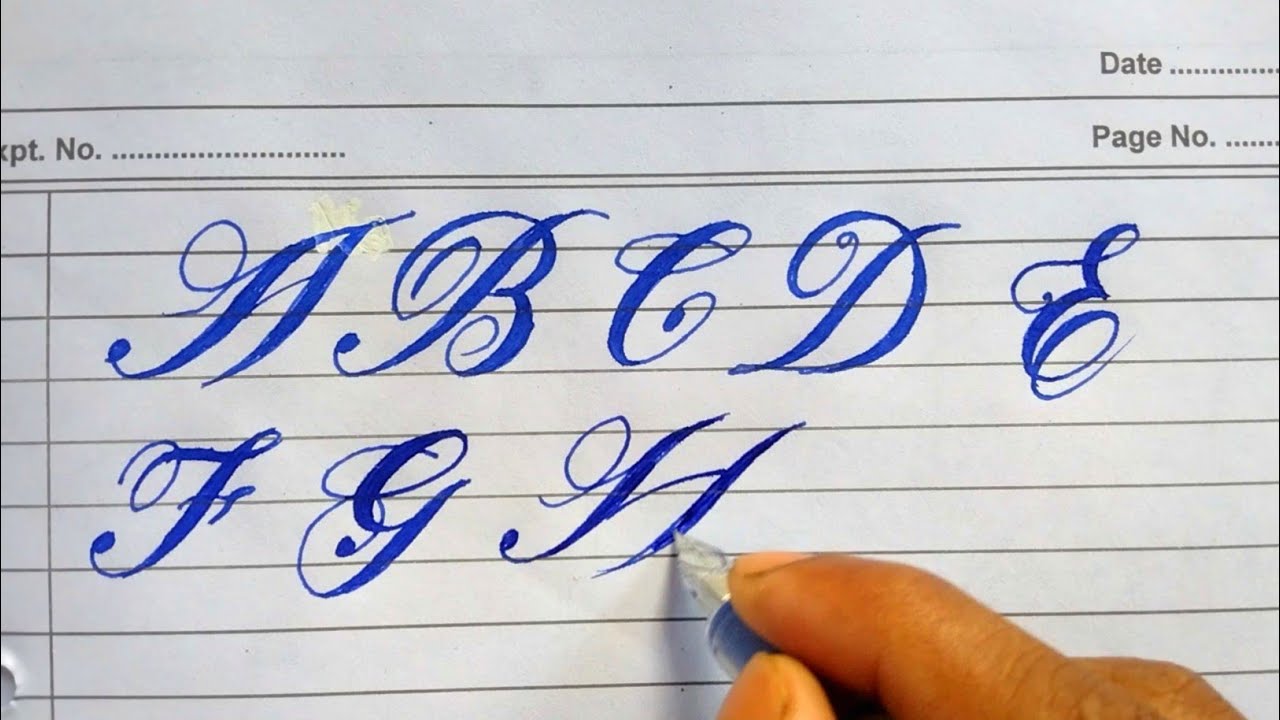 Date ..............
xpt. No. ............................. Page No. .......
A B C D E
F G H